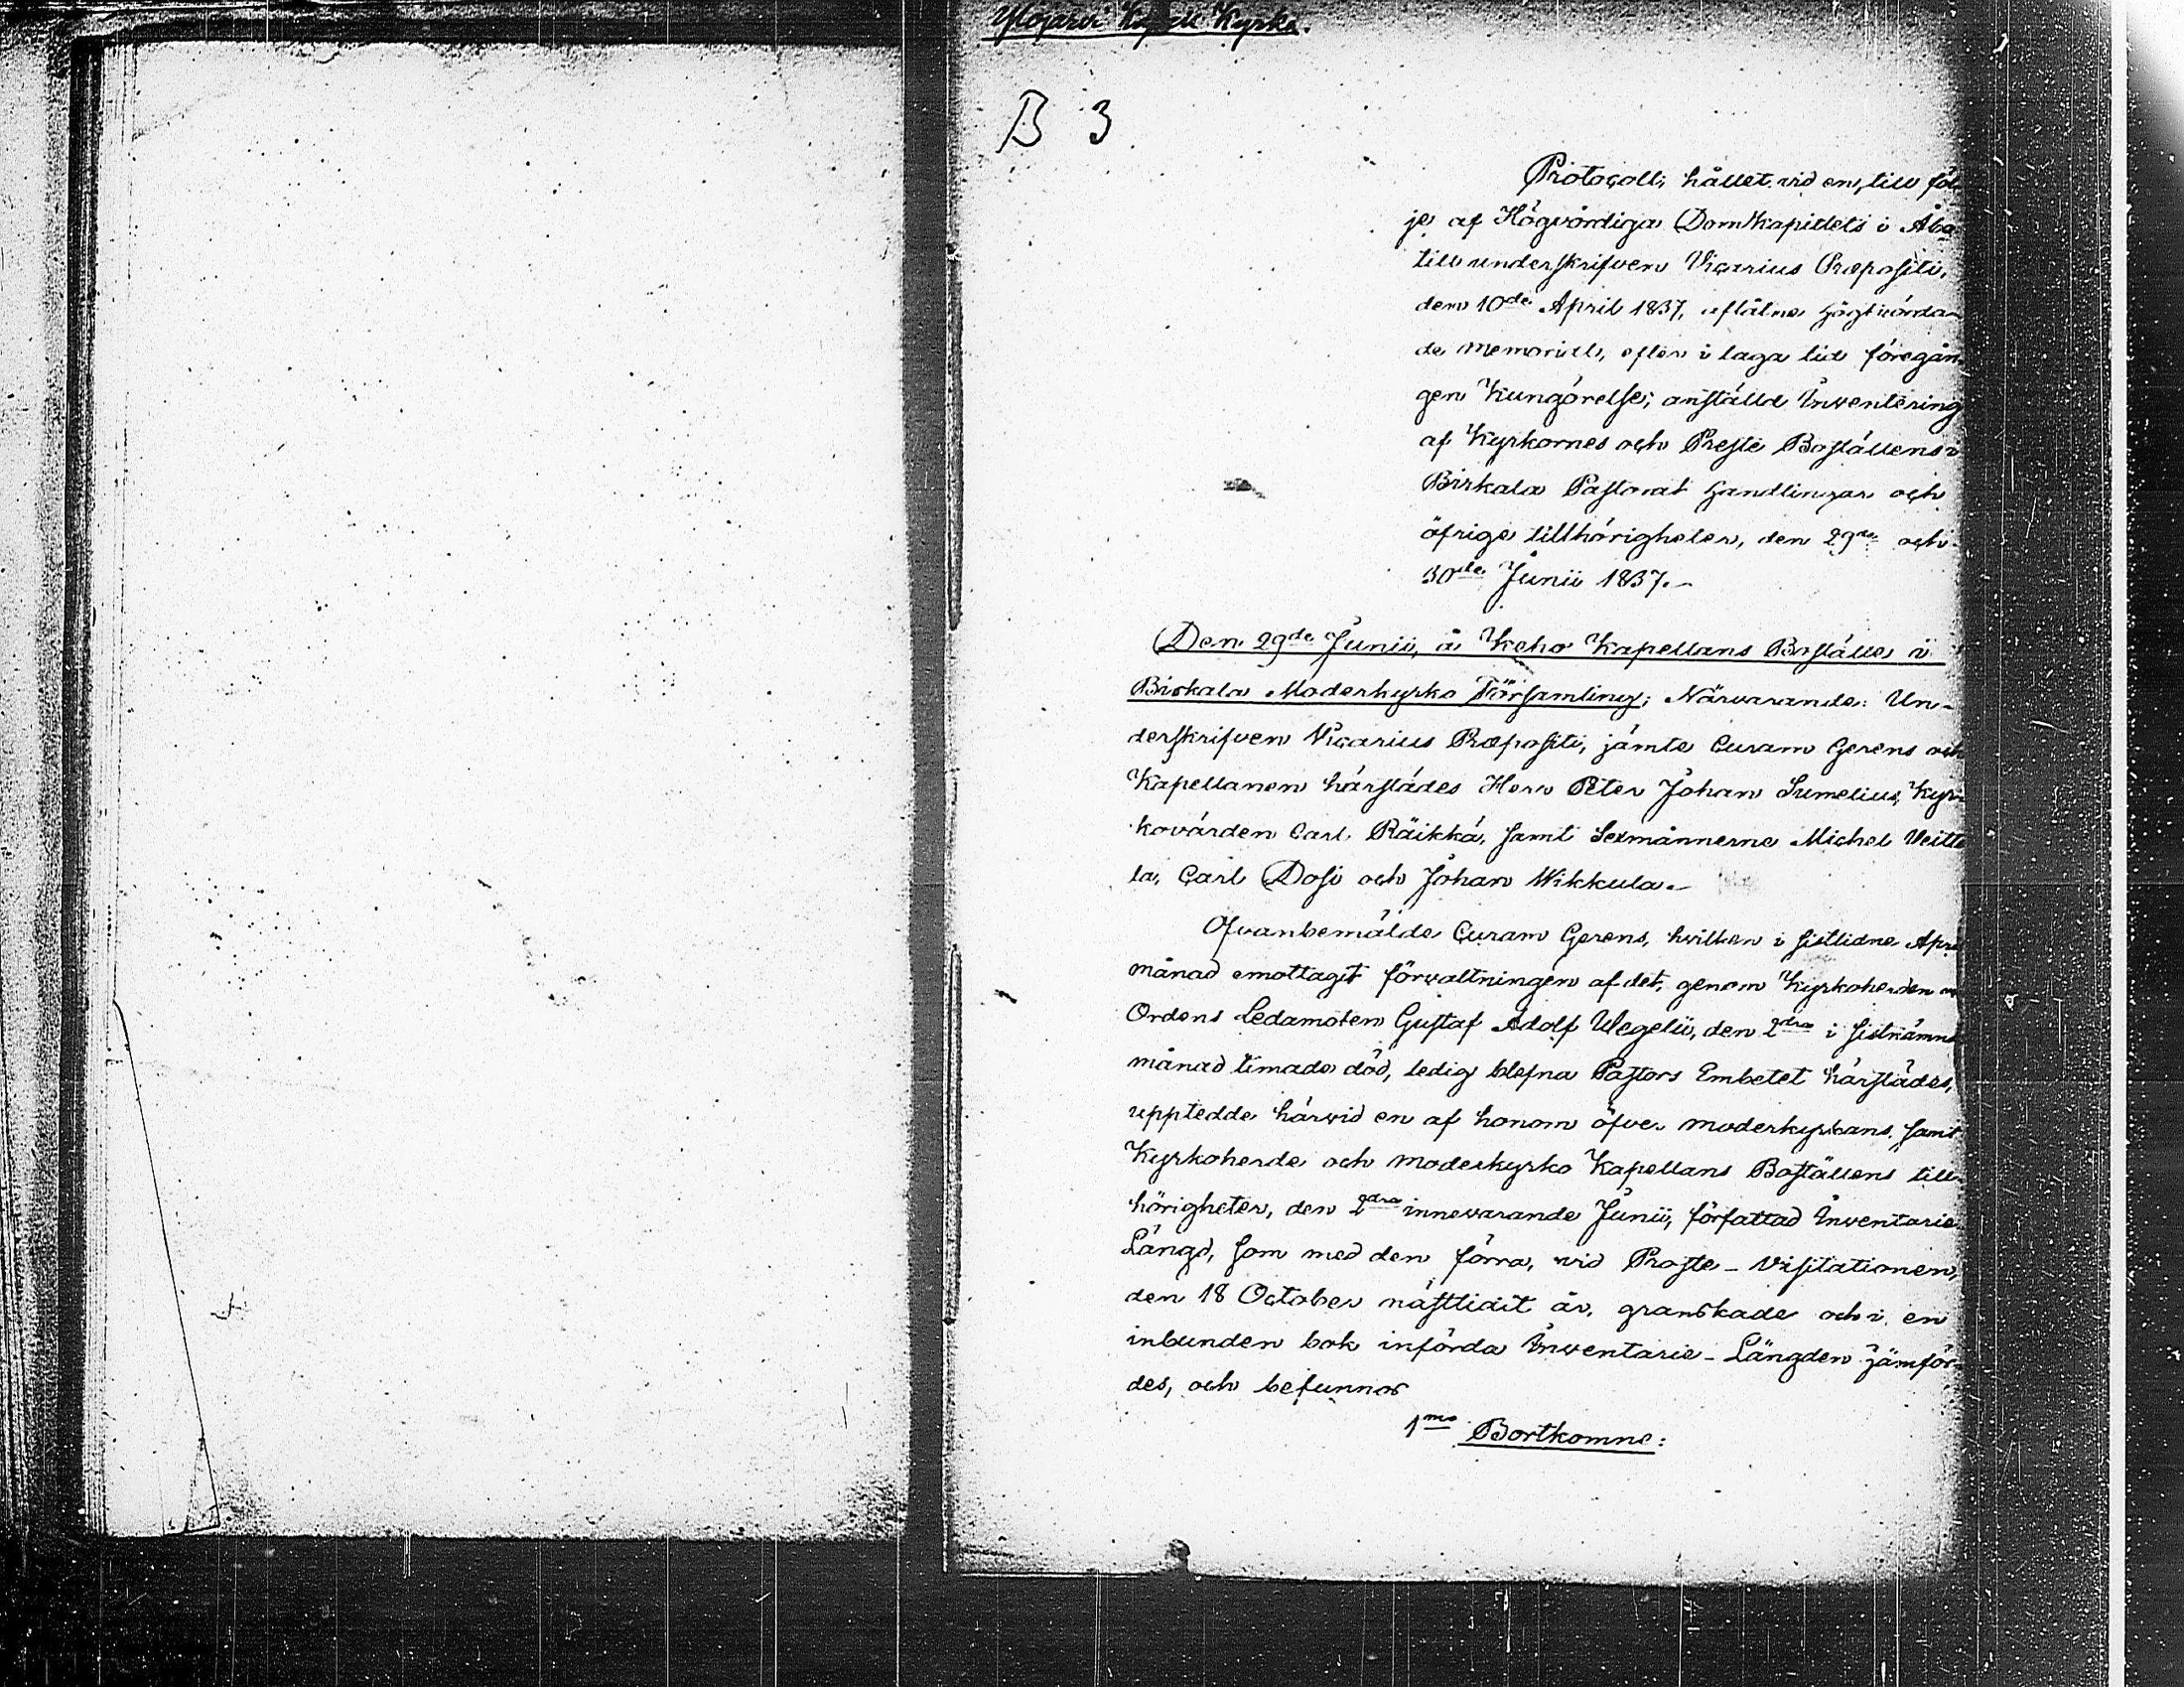 Ylöjärvi Kapell Kyrka.
B 3
Protocoll, hållet vid en, till föl-
je af Högvördiga DomKapitlets i Åbo
till underskrifven Vicarius Præpositi,
den 10de April 1837, aflåtne högtvörda-
de Memorial, efter i laga tid föregån-
gen Kungörelse, anställd Inventering
af Kyrkornes och Preste Boställens i
Birkala Pastorat handlingar och
öfrige tillhörigheter, den 29de och
30de Junii 1837.-
Den 29de Junii, å Keho Kapellans Boställe i
Birkala Moderkyrko Församling; Närvarande: Un-
derskrifven Vicarius Præpositi, jämte Curam Gerens och
Kapellanen härstädes Herr Peter Johan Sumelius, Kyr-
kovärden Carl Räikkä, samt Sexmännerne Michel Veitti
la, Carl Dosi och Johan Wikkula.-
Ofvanbemälde Curam Gerens, hvilken i sistlidne April
månad emottagit förvaltningen af det, genom Kyrkoherden och
Ordens Ledamoten Gustaf Adolf Wegelii, den 2dra i sistnämnde
månad timade död, ledig blefna Pastors Embetet härstädes,
upptedde härvid en af honom öfver moderkyrkans, samt
Kyrkoherde och moderkyrko Kapellans Boställens till-
hörigheter, den 2dra innevarande Junii, författad Inventarie-
Längd, som med den förra, vid Proste-Visitationen,
den 18 October nästlidit år, granskade och i en
inbunden bok införda Inventarie-Längden jämför-
des, och befunnos
1mo Bortkomne: